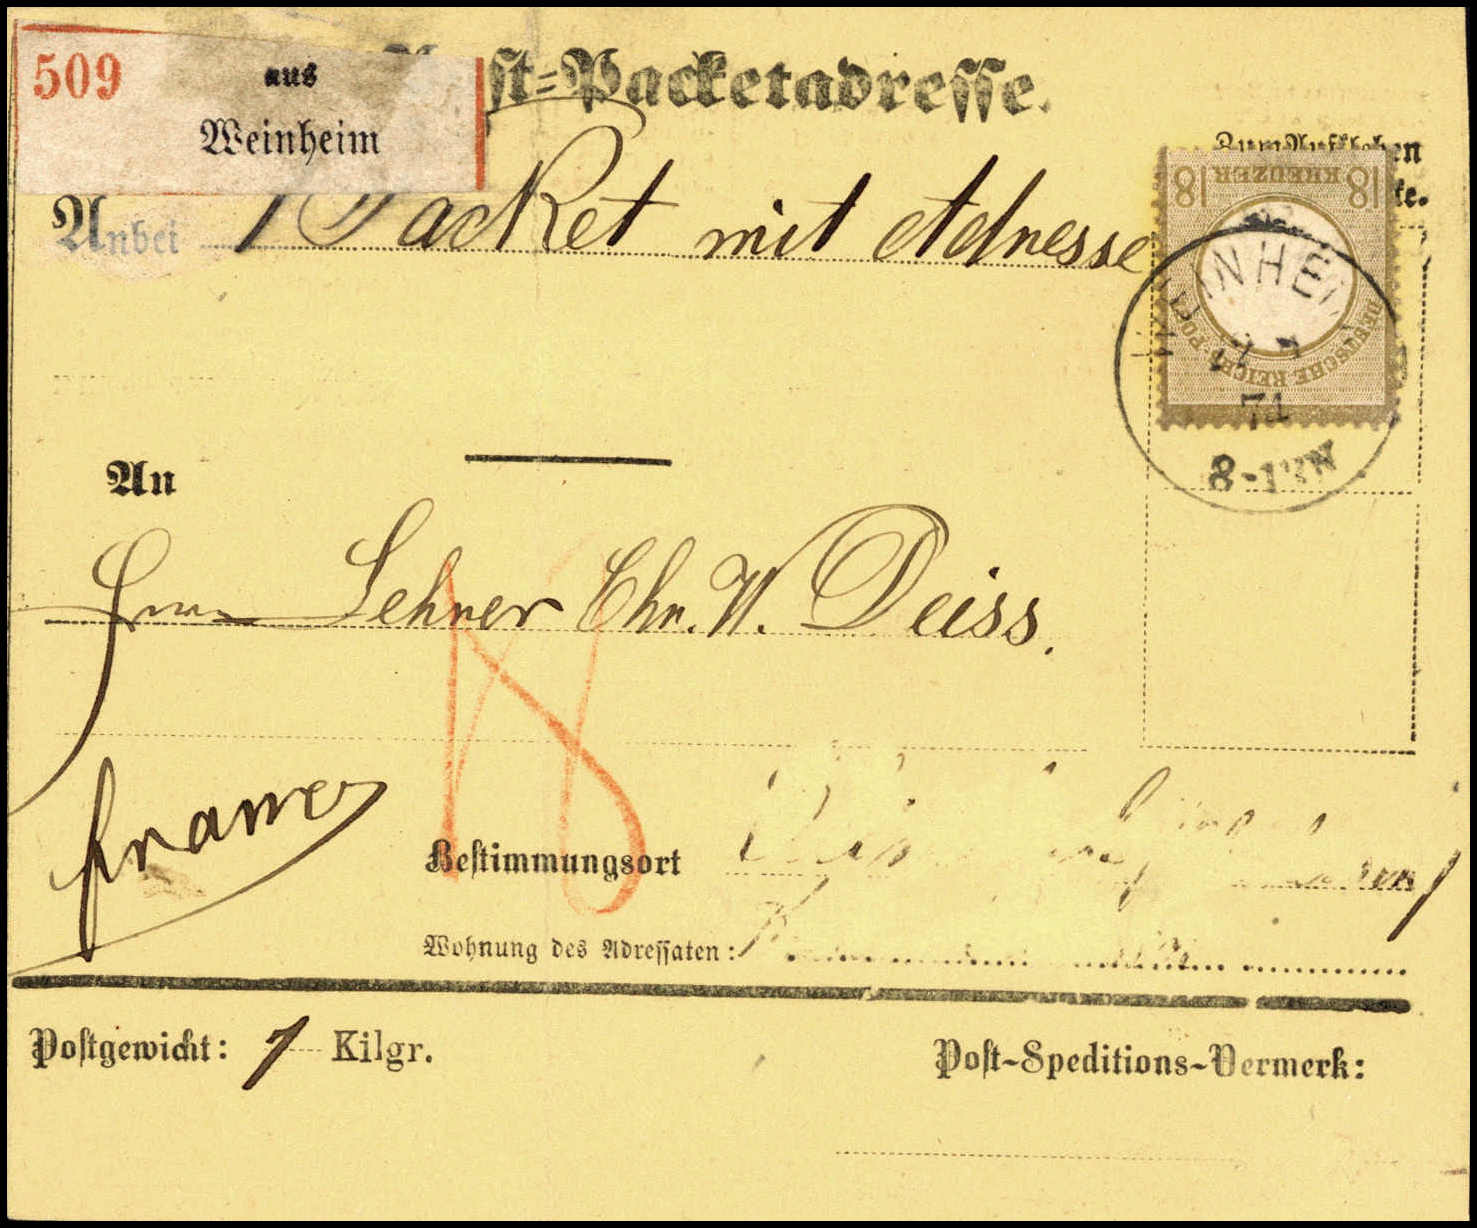 509
aus
Weinheim
Post-Packetadresse.
Zum Aufkleben
ke.
Anbei 1 Packet mit Adresse
18 KREUZER 18
DEUTSCHE REICHS-POST
WEINHEIM
74
8-1
An
Herrn Lehrer Chr. W. Deiss.
18
franco
Bestimmungsort
Wohnung des Adressaten:
Postgewicht: 1 Kilgr.
Post-Speditions-Vermerk: